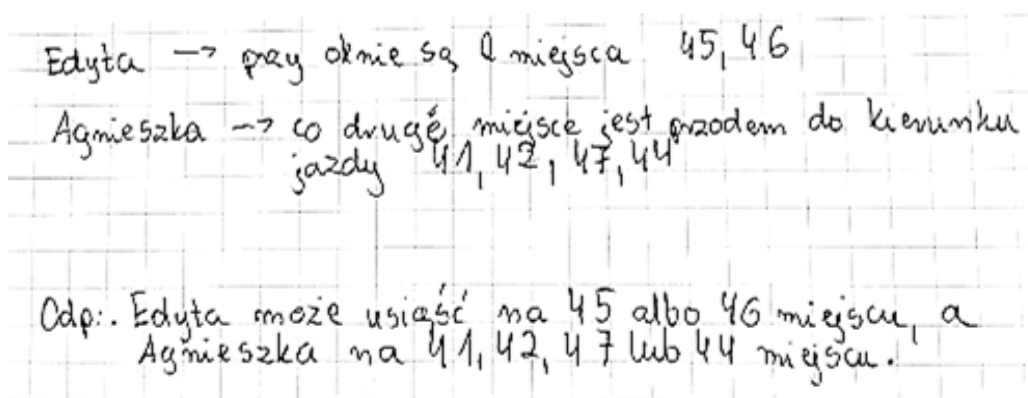 Edyta → przy oknie są 2 miejsca 45, 46
Agnieszka → co drugie miejsce jest przodem do kierunku
jazdy 41, 42, 47, 44
Odp:. Edyta może usiąść na 45 albo 46 miejscu, a
Agnieszka na 41, 42, 47 lub 44 miejscu.